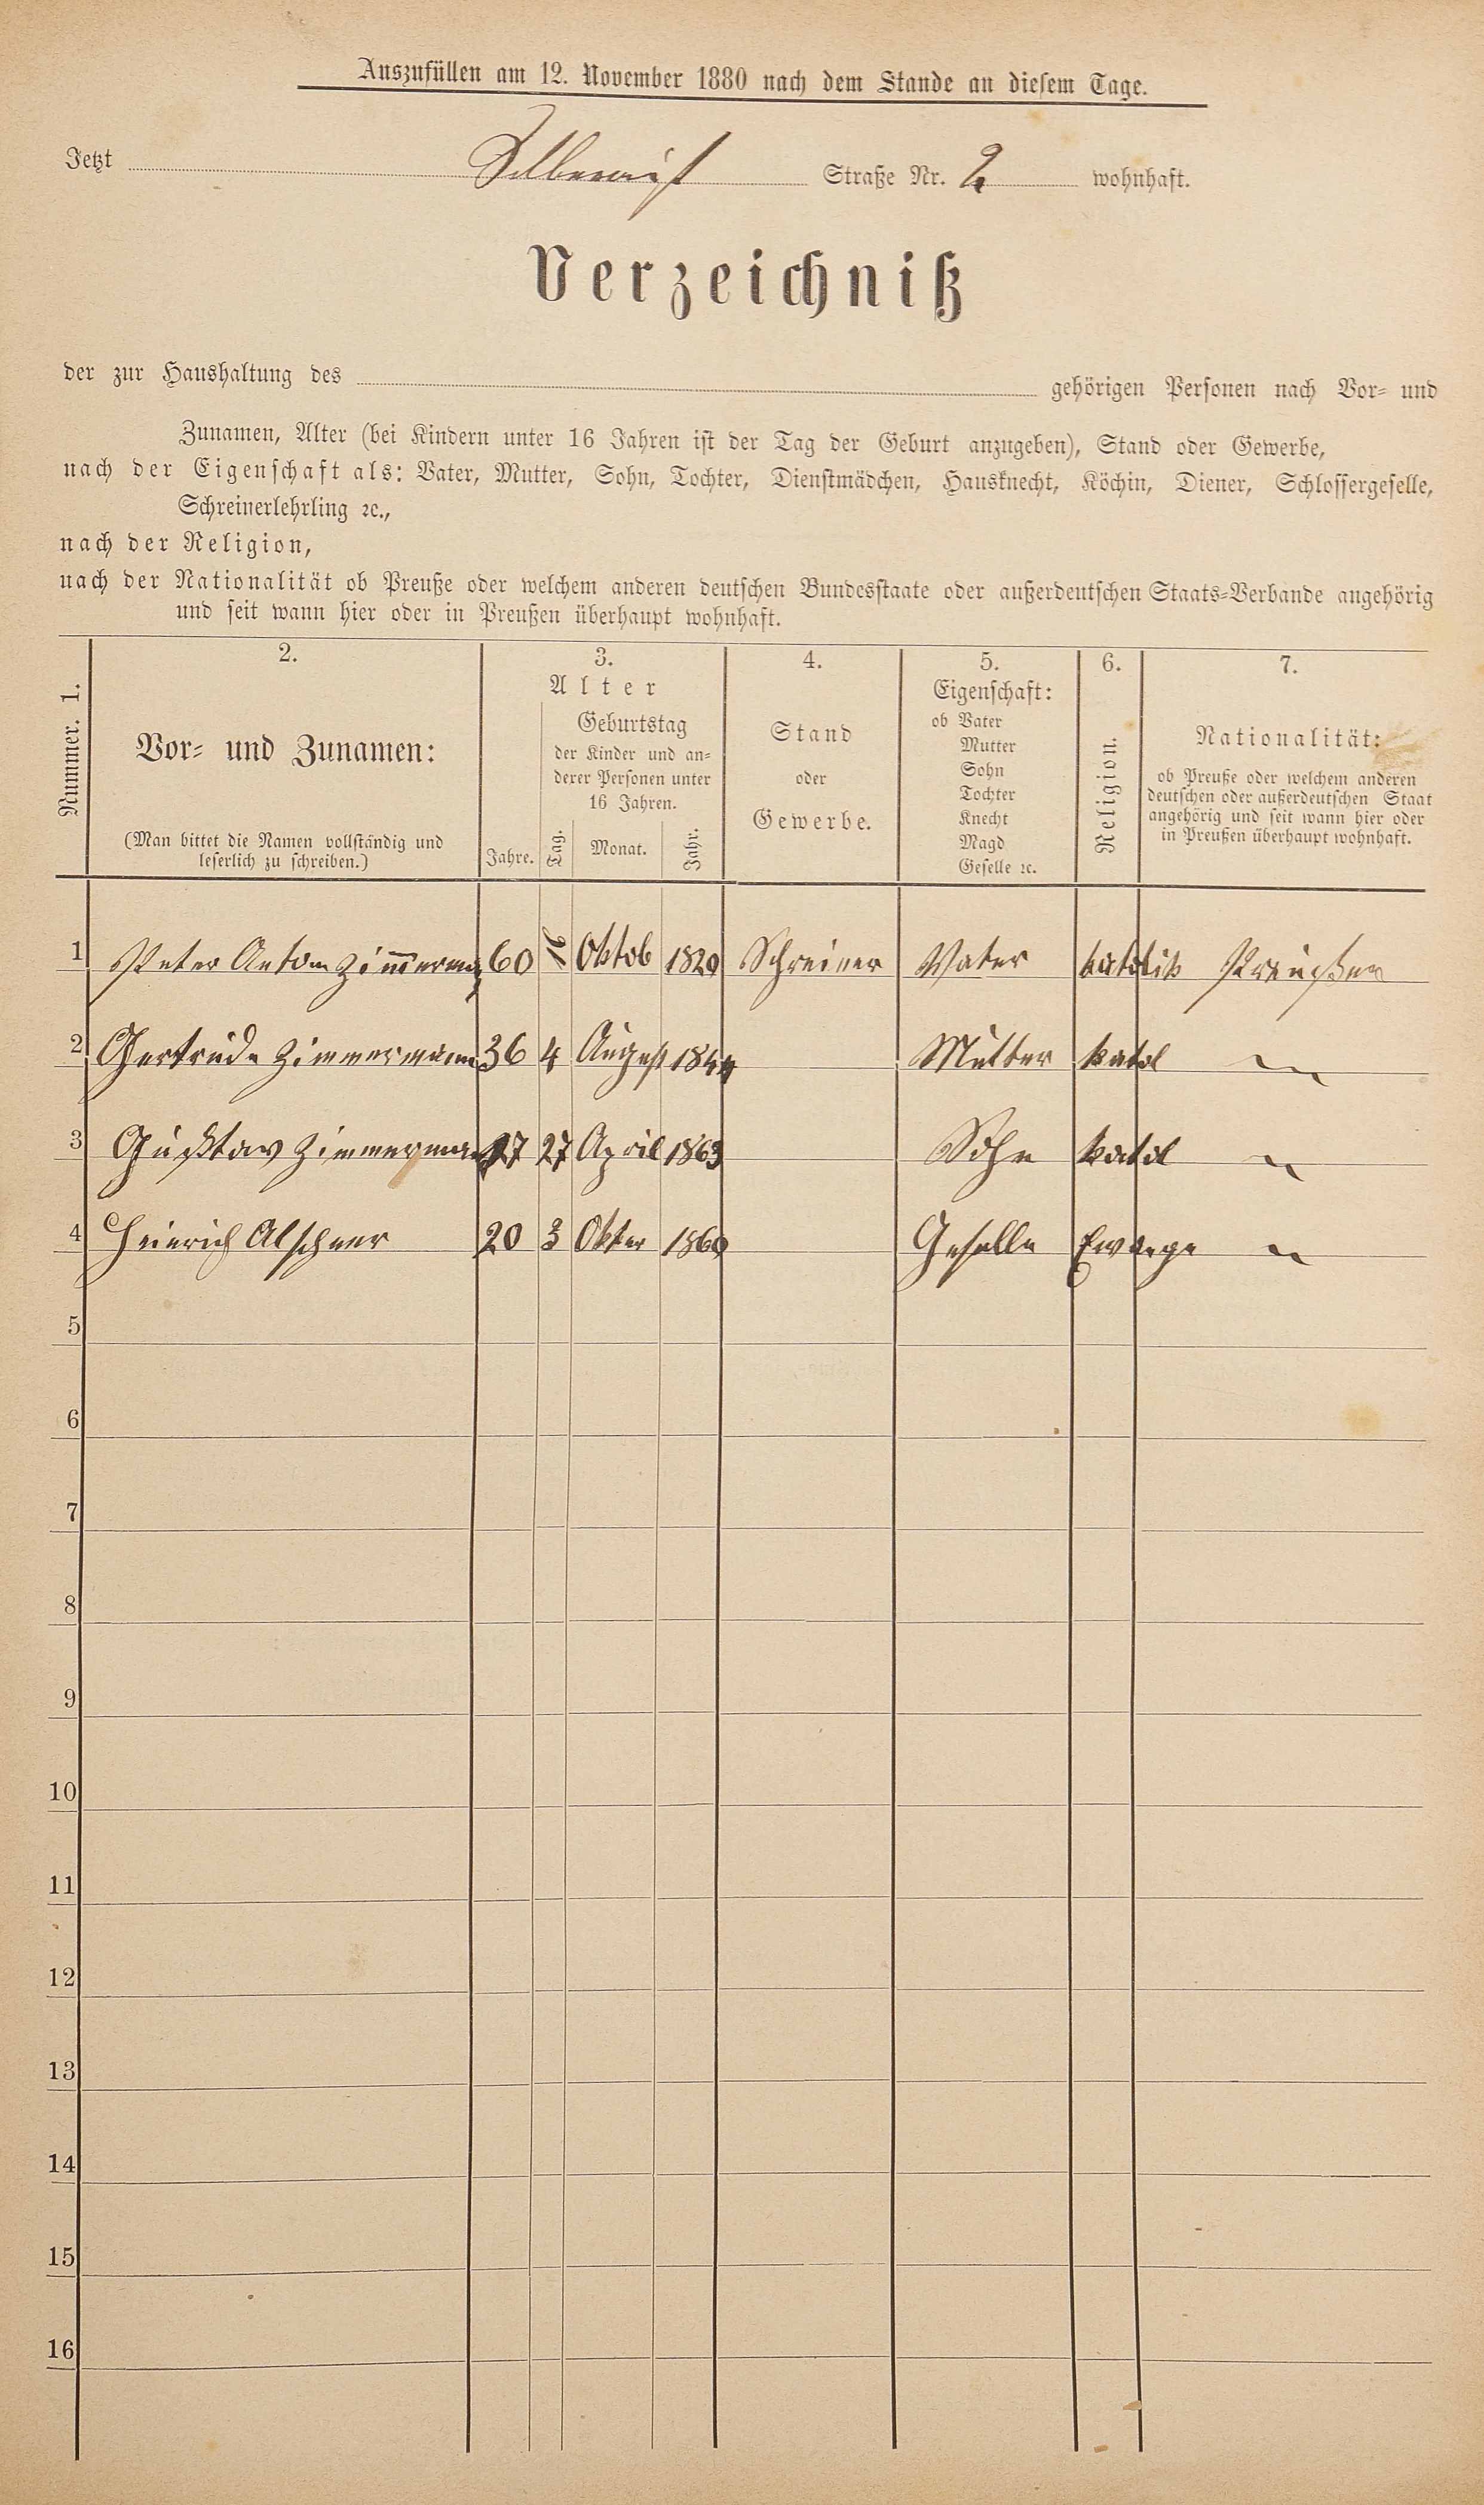 Auszufüllen am 12. November 1880 nach dem Stande an diesem Tage.
Jetzt Straße Nr. 2 wohnhaft.
Verzeichniß
der zur Haushaltung des gehörigen Personen nach Vor- und
Zunamen, Alter (bei Kindern unter 16 Jahren ist der Tag der Geburt anzugeben), Stand oder Gewerbe,
nach der Eigenschaft als: Vater, Mutter, Sohn, Tochter, Dienstmädchen, Hausknecht, Köchin, Diener, Schlossergeselle,
Schreinerlehrling ꝛc.,
nach der Religion,
nach der Nationalität ob Preuße oder welchem anderen deutschen Bundesstaate oder außerdeutschen Staats-Verbande angehörig
und seit wann hier oder in Preußen überhaupt wohnhaft.
Nummer. 1.
2.
Vor- und Zunamen:
(Man bittet die Namen vollständig und
leserlich zu schreiben.)
3.
Alter
Jahre.
Geburtstag
der Kinder und an-
derer Personen unter
16 Jahren.
Tag. Monat. Jahr.
4.
Stand
oder
Gewerbe.
5.
Eigenschaft:
ob Vater
Mutter
Sohn
Tochter
Knecht
Magd
Geselle ꝛc.
6.
Religion.
7.
Nationalität:
ob Preuße oder welchem anderen
deutschen oder außerdeutschen Staat
angehörig und seit wann hier oder
in Preußen überhaupt wohnhaft.
1 Peter Anton Zimerman 60 16 Oktob 1820 Schreiner Vater katolik Preußen
2 Gertrude Zimmermann 36 4 August 1844 Mutter katol
3 Gusktav Zimmerman 27 April 1863 Sohn katol
4 Heinrich Alschner 20 3 Okter 1860 Geselle Ewange
5
6
7
8
9
10
11
12
13
14
15
16